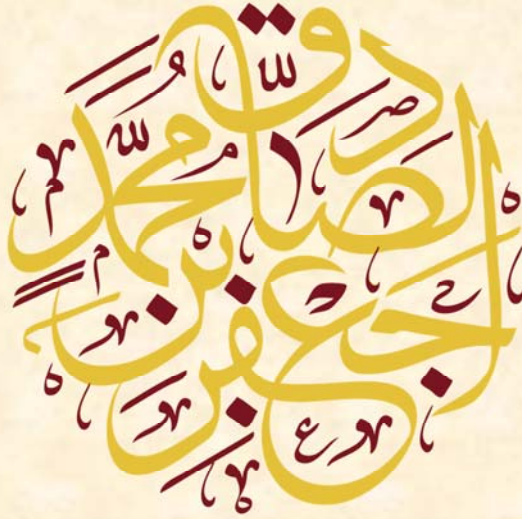 جعفر بن محمد الصادق